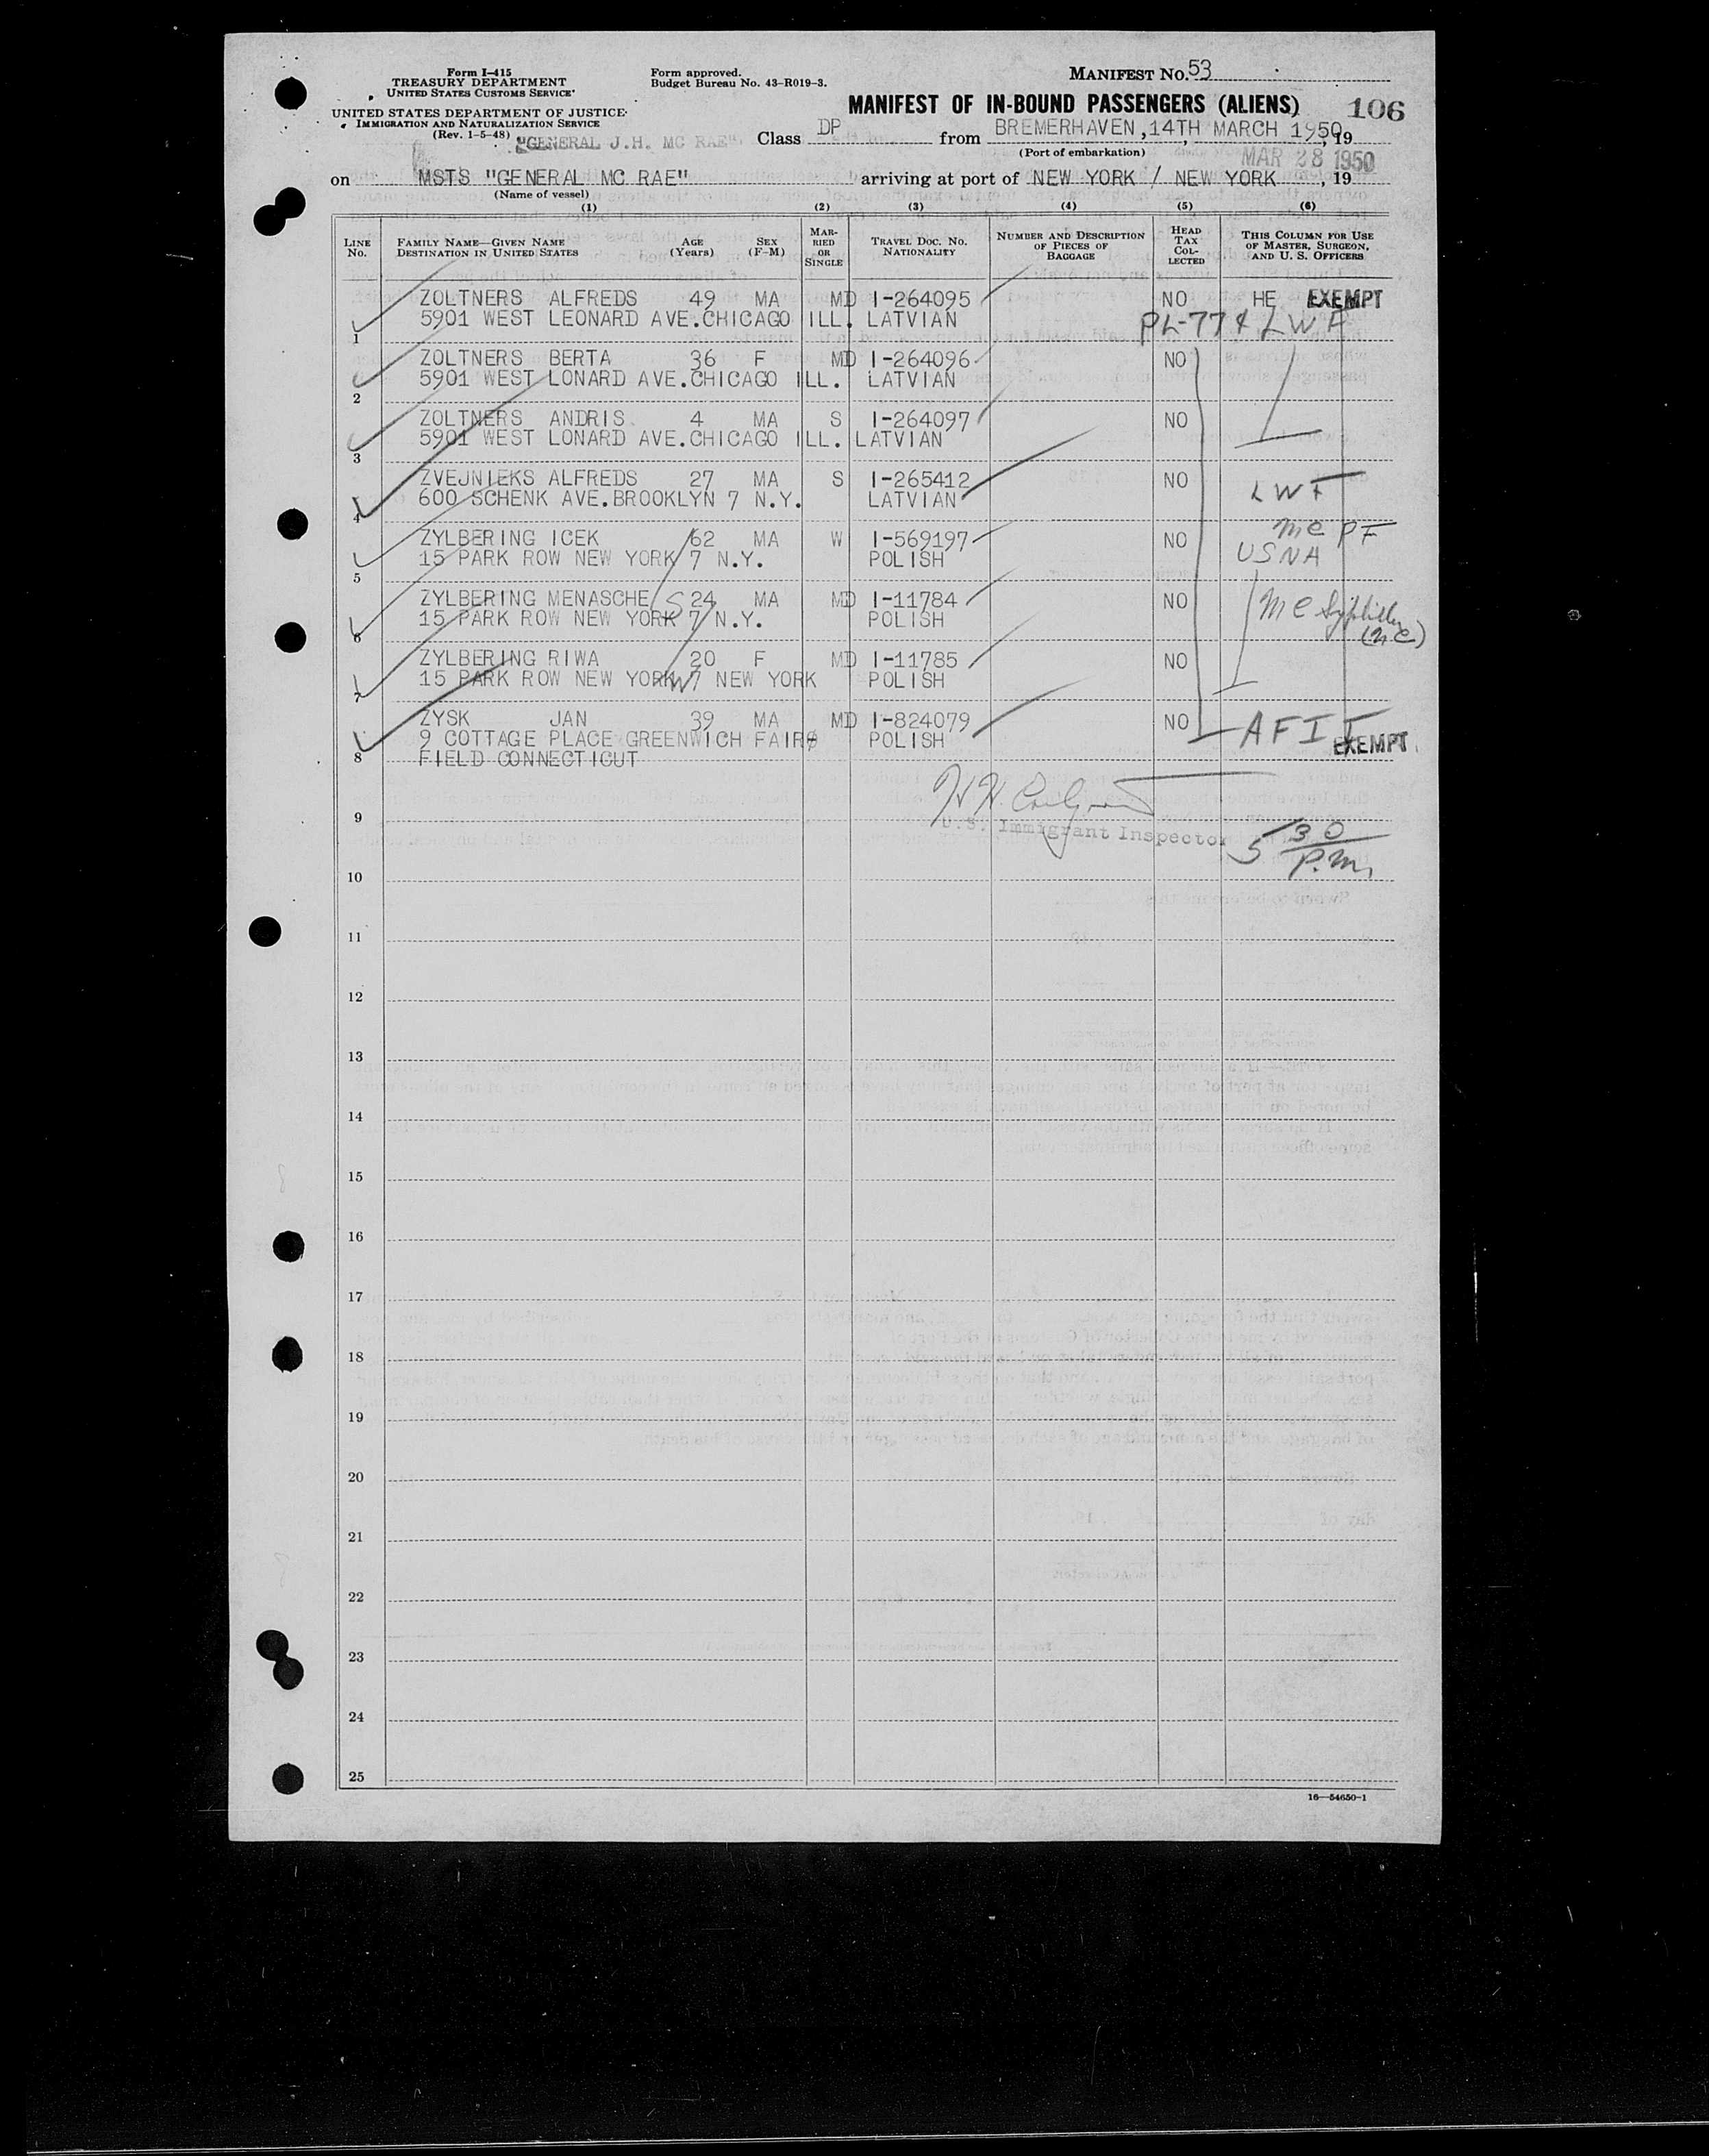 Form I-415
TREASURY DEPARTMENT
UNITED STATES CUSTOMS SERVICE
UNITED STATES DEPARTMENT OF JUSTICE
IMMIGRATION AND NATURALIZATION SERVICE
(Rev. 1-5-48)
Form approved.
Budget Bureau No. 43-R019-3.
MANIFEST NO. 53
MANIFEST OF IN-BOUND PASSENGERS (ALIENS) 106
"GENERAL J.H. MC RAE" Class DP from BREMERHAVEN, 14TH MARCH 1950, 19
(Port of embarkation) MAR 28 1950
on MSTS "GENERAL MC RAE" arriving at port of NEW YORK / NEW YORK, 19
(Name of vessel)
(1) (2) (3) (4) (5) (6)
LINE NO. FAMILY NAME—GIVEN NAME DESTINATION IN UNITED STATES AGE (Years) SEX (F-M) MARRIED OR SINGLE TRAVEL DOC. NO. NATIONALITY NUMBER AND DESCRIPTION OF PIECES OF BAGGAGE HEAD TAX COLLECTED THIS COLUMN FOR USE OF MASTER, SURGEON, AND U. S. OFFICERS
ZOLTNERS ALFREDS 49 MA MD I-264095 NO HE EXEMPT
1 5901 WEST LEONARD AVE.CHICAGO ILL. LATVIAN PL-774 LWF
ZOLTNERS BERTA 36 F MD I-264096 NO
2 5901 WEST LONARD AVE.CHICAGO ILL. LATVIAN
ZOLTNERS ANDRIS 4 MA S I-264097 NO
3 5901 WEST LONARD AVE.CHICAGO ILL. LATVIAN
ZVEJNIEKS ALFREDS 27 MA S I-265412 NO
4 600 SCHENK AVE.BROOKLYN 7 N.Y. LATVIAN LWF
ZYLBERING ICEK 62 MA W I-569197 NO MC PF
5 15 PARK ROW NEW YORK 7 N.Y. POLISH USNA
ZYLBERING MENASCHE S 24 MA MD I-11784 NO MC Syphilis
6 15 PARK ROW NEW YORK 7 N.Y. POLISH (NC)
ZYLBERING RIWA 20 F MD I-11785 NO
7 15 PARK ROW NEW YORK W 7 NEW YORK POLISH
ZYSK JAN 39 MA MD I-824079 NO AFII
8 9 COTTAGE PLACE GREENWICH FAIR POLISH EXEMPT
FIELD CONNECTICUT
9
U.S. Immigrant Inspector 5 30 P.M.
10
11
12
13
14
15
16
17
18
19
20
21
22
23
24
25
16—54650-1